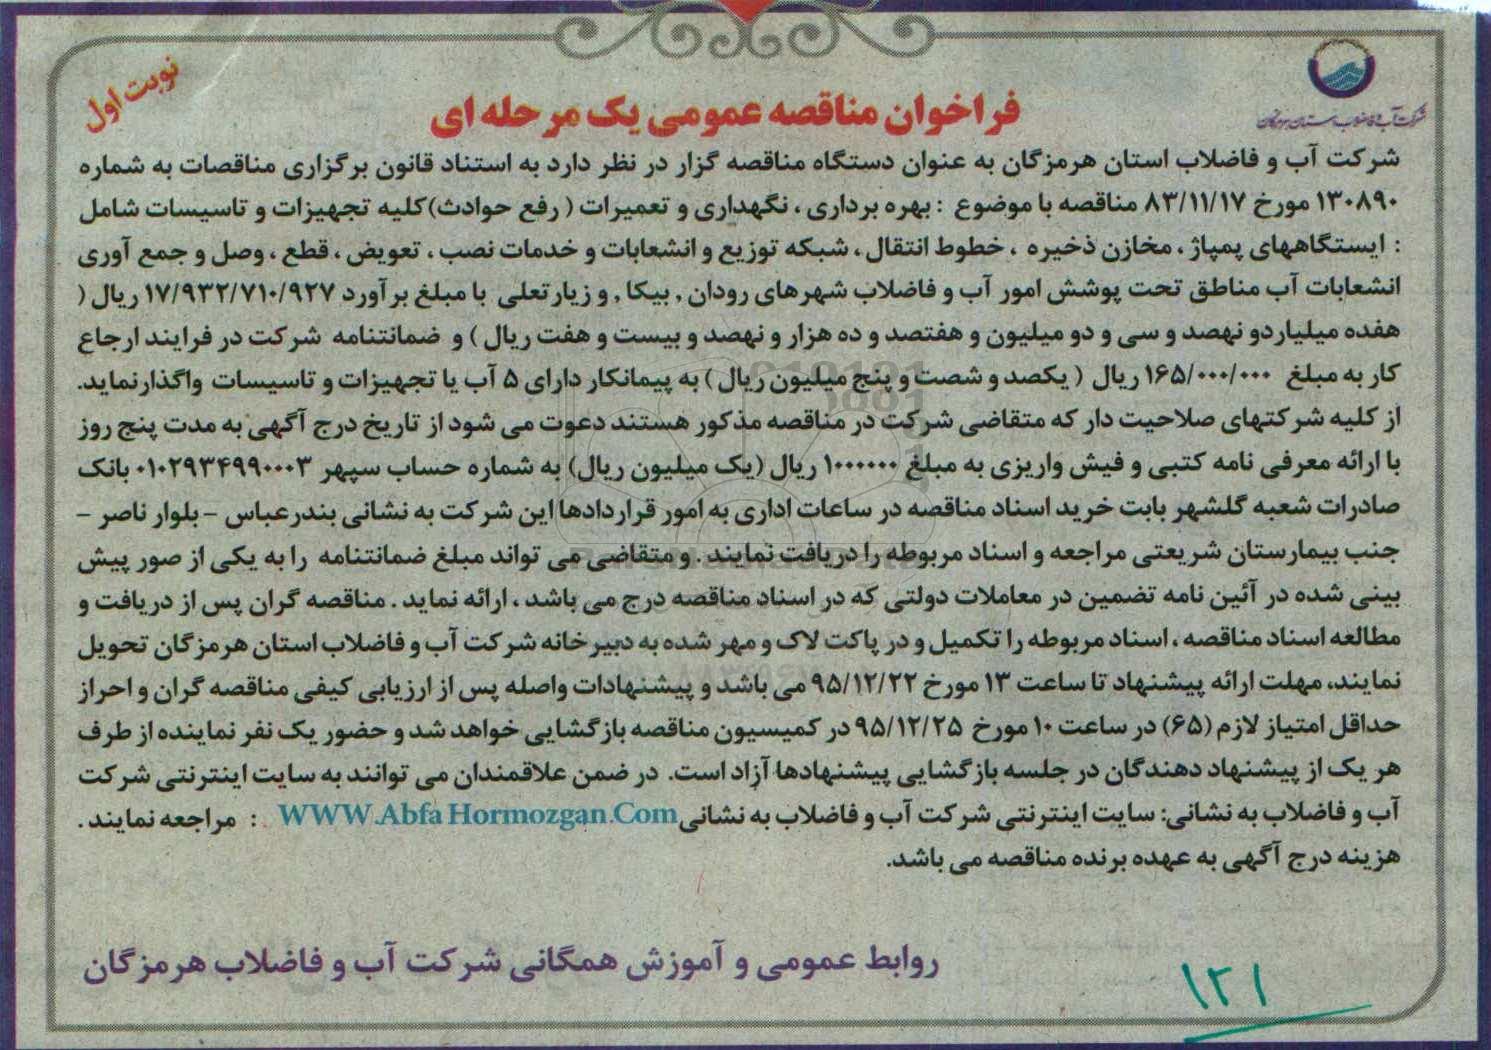 شرکت آب و فاضلاب استان هرمزگان
نوبت اول
فراخوان مناقصه عمومی یک مرحله ای
شرکت آب و فاضلاب استان هرمزگان به عنوان دستگاه مناقصه گزار در نظر دارد به استناد قانون برگزاری مناقصات به شماره
۱۳۰۸۹۰ مورخ ۸۳/۱۱/۱۷ مناقصه با موضوع : بهره برداری ، نگهداری و تعمیرات ( رفع حوادث)کلیه تجهیزات و تاسیسات شامل
: ایستگاههای پمپاژ ، مخازن ذخیره ، خطوط انتقال ، شبکه توزیع و انشعابات و خدمات نصب ، تعویض ، قطع ، وصل و جمع آوری
انشعابات آب مناطق تحت پوشش امور آب و فاضلاب شهرهای رودان , بیکا , و زیارتعلی با مبلغ برآورد ۱۷/۹۳۲/۷۱۰/۹۲۷ ریال (
هفده میلیاردو نهصد و سی و دو میلیون و هفتصد و ده هزار و نهصد و بیست و هفت ریال ) و ضمانتنامه شرکت در فرایند ارجاع
کار به مبلغ ۱۶۵/۰۰۰/۰۰۰ ریال ( یکصد و شصت و پنج میلیون ریال ) به پیمانکار دارای ۵ آب یا تجهیزات و تاسیسات واگذارنماید.
از کلیه شرکتهای صلاحیت دار که متقاضی شرکت در مناقصه مذکور هستند دعوت می شود از تاریخ درج آگهی به مدت پنج روز
با ارائه معرفی نامه کتبی و فیش واریزی به مبلغ ۱۰۰۰۰۰۰ ریال (یک میلیون ریال) به شماره حساب سپهر ۰۱۰۲۹۳۴۹۹۰۰۰۳ بانک
صادرات شعبه گلشهر بابت خرید اسناد مناقصه در ساعات اداری به امور قراردادها این شرکت به نشانی بندرعباس – بلوار ناصر –
جنب بیمارستان شریعتی مراجعه و اسناد مربوطه را دریافت نمایند . و متقاضی می تواند مبلغ ضمانتنامه را به یکی از صور پیش
بینی شده در آئین نامه تضمین در معاملات دولتی که در اسناد مناقصه درج می باشد ، ارائه نماید . مناقصه گران پس از دریافت و
مطالعه اسناد مناقصه ، اسناد مربوطه را تکمیل و در پاکت لاک و مهر شده به دبیرخانه شرکت آب و فاضلاب استان هرمزگان تحویل
نمایند، مهلت ارائه پیشنهاد تا ساعت ۱۳ مورخ ۹۵/۱۲/۲۲ می باشد و پیشنهادات واصله پس از ارزیابی کیفی مناقصه گران و احراز
حداقل امتیاز لازم (۶۵) در ساعت ۱۰ مورخ ۹۵/۱۲/۲۵ در کمیسیون مناقصه بازگشایی خواهد شد و حضور یک نفر نماینده از طرف
هر یک از پیشنهاد دهندگان در جلسه بازگشایی پیشنهادها آزاد است. در ضمن علاقمندان می توانند به سایت اینترنتی شرکت
آب و فاضلاب به نشانی: سایت اینترنتی شرکت آب و فاضلاب به نشانی WWW.Abfa Hormozgan.Com : مراجعه نمایند .
هزینه درج آگهی به عهده برنده مناقصه می باشد.
روابط عمومی و آموزش همگانی شرکت آب و فاضلاب هرمزگان
۱۲۱